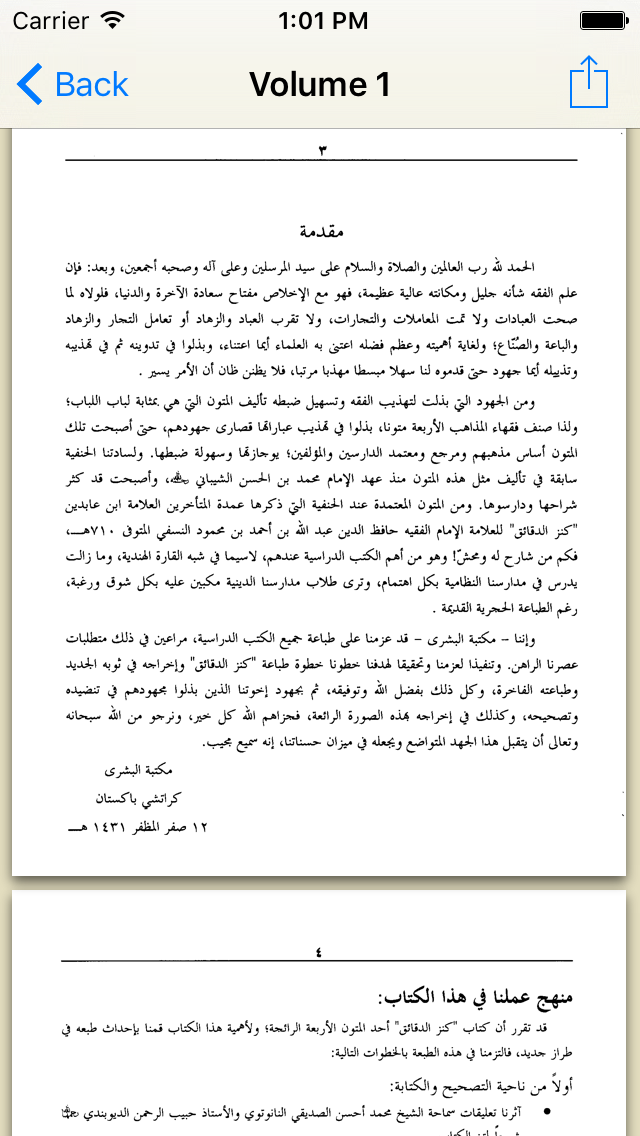 Carrier 1:01 PM
Back Volume 1
٣
مقدمة
الحمد لله رب العالمين والصلاة والسلام على سيد المرسلين وعلى آله وصحبه أجمعين، وبعد: فإن
علم الفقه شأنه جليل ومكانته عالية عظيمة، فهو مع الإخلاص مفتاح سعادة الآخرة والدنيا، فلولاه لما
صحت العبادات ولا تمت المعاملات والتجارات، ولا تقرب العباد والزهاد أو تعامل التجار والزهاد
والباعة والصُنّاع؛ ولغاية أهميته وعظم فضله اعتنى به العلماء أيما اعتناء، وبذلوا في تدوينه ثم في تهذيبه
وتذييله أيما جهود حتى قدموه لنا سهلا مبسطا مهذبا مرتبا، فلا يظنن ظان أن الأمر يسير .
ومن الجهود التي بذلت لتهذيب الفقه وتسهيل ضبطه تأليف المتون التي هي بمثابة لباب اللباب؛
ولذا صنف فقهاء المذاهب الأربعة متونا، بذلوا في تهذيب عباراتها قصارى جهودهم، حتى أصبحت تلك
المتون أساس مذهبهم ومرجع ومعتمد الدارسين والمؤلفين؛ يوجازتها وسهولة ضبطها. ولسادتنا الحنفية
سابقة في تأليف مثل هذه المتون منذ عهد الإمام محمد بن الحسن الشيباني، وأصبحت قد كثر
شراحها ودارسوها. ومن المتون المعتمدة عند الحنفية التي ذكرها عمدة المتأخرين العلامة ابن عابدين
"كنز الدقائق" للعلامة الإمام الفقيه حافظ الدين عبد الله بن أحمد بن محمود النسفي المتوفى ٧١٠هـــ،
فكم من شارح له ومحشّ! وهو من أهم الكتب الدراسية عندهم، لاسيما في شبه القارة الهندية، وما زالت
يدرس في مدارسنا النظامية بكل اهتمام، وترى طلاب مدارسنا الدينية مكبين عليه بكل شوق ورغبة،
رغم الطباعة الحجرية القديمة .
وإننا – مكتبة البشرى – قد عزمنا على طباعة جميع الكتب الدراسية، مراعين في ذلك متطلبات
عصرنا الراهن. وتنفيذا لعزمنا وتحقيقا لهدفنا خطونا خطوة طباعة "كنز الدقائق" وإخراجه في ثوبه الجديد
وطباعته الفاخرة، وكل ذلك بفضل الله وتوفيقه، ثم بجهود إخوتنا الذين بذلوا مجهودهم في تنضيده
وتصحيحه، وكذلك في إخراجه بهذه الصورة الرائعة، فجزاهم الله كل خير، ونرجو من الله سبحانه
وتعالى أن يتقبل هذا الجهد المتواضع ويجعله في ميزان حسناتنا، إنه سميع مجيب.
مكتبة البشرى
كراتشي باكستان
١٢ صفر المظفر ١٤٣١ هـــ
٤
منهج عملنا في هذا الكتاب:
قد تقرر أن كتاب "كنز الدقائق" أحد المتون الأربعة الرائحة؛ ولأهمية هذا الكتاب قمنا بإحداث طبعه في
طراز جديد، فالتزمنا في هذه الطبعة بالخطوات التالية:
أولاً من ناحية التصحيح والكتابة:
• آثرنا تعليقات سماحة الشيخ محمد أحسن الصديقي النانوتوي والأستاذ حبيب الرحمن الديوبندي